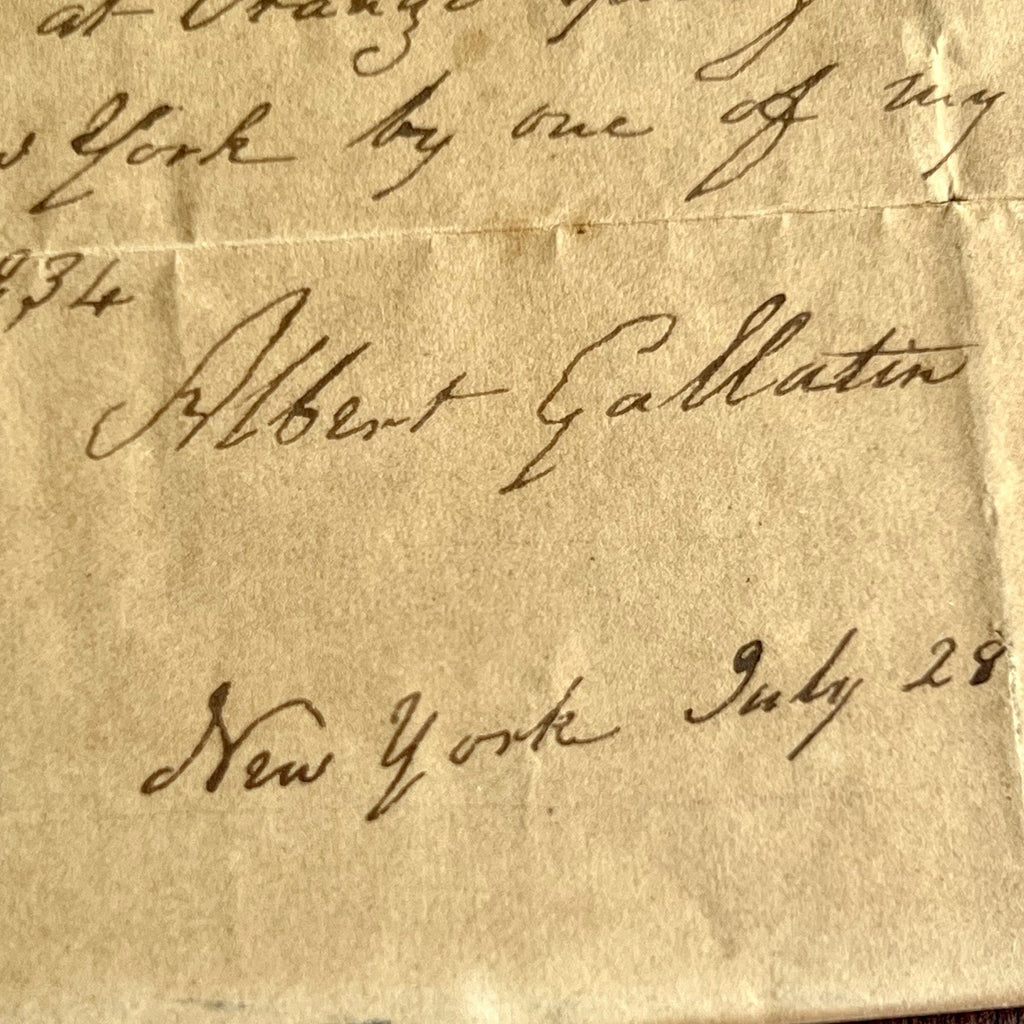 at Orange
York by one of my
34
Albert Gallatin
New York July 28